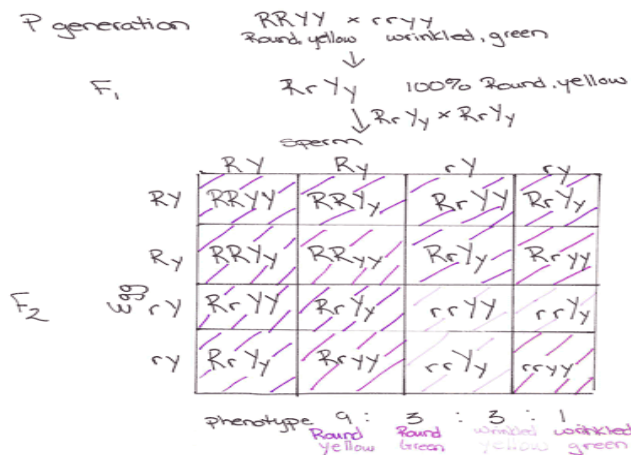 P generation RRYY × rryy
Round, yellow wrinkled, green
F1 RrYy 100% Round, yellow
RrYy × RrYy
Sperm
RY Ry rY ry
RY RRYY RRYy RrYY RrYy
Ry RRYy RRyy RrYy Rryy
F2 Egg rY RrYY RrYy rrYY rrYy
ry RrYy Rryy rrYy rryy
phenotype 9 : 3 : 3 : 1
Round Round Wrinkled wrinkled
yellow Green yellow green